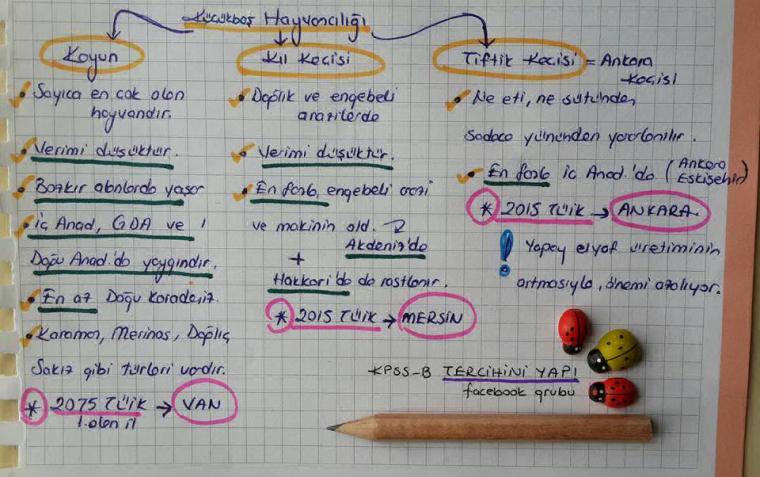 Küçükbaş Hayvancılığı
Koyun
Sayıca en çok olan
hayvandır.
Verimi düşüktür.
Bozkır alanlarda yaşar
İç Anad, GDA ve
Doğu Anad.'da yaygındır.
En az Doğu Karadeniz
Karaman, Merinos, Dağlıç
Sakız gibi türleri vardır.
* 2075 TÜİK → VAN
1. olan il
Kıl Keçisi
Dağlık ve engebeli
arazilerde
Verimi düşüktür.
En fazla, engebeli arazi
ve makinin old.
Akdeniz'de
+
Hakkari'de de rastlanır.
* 2015 TÜİK → MERSİN
Tiftik Keçisi = Ankara
Keçisi
Ne eti, ne sütünden
Sadece yününden yararlanılır.
En fazla İç Anad.'da (Ankara
Eskişehir)
* 2015 TÜİK → ANKARA
! Yapay elyaf üretiminin
artmasıyla, önemi azalıyor.
KPSS-B TERCİHİNİ YAPI
facebook grubu